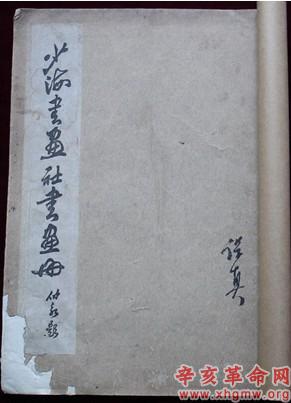 少海書畫社書畫冊
題
真
辛亥革命网
www.xhgmw.org